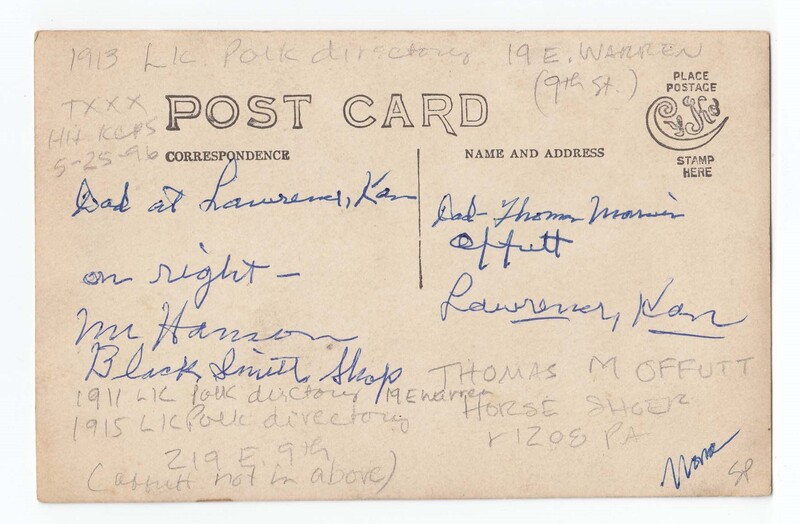 1913 LK. Polk directory 19 E. WARREN
(9th St.)
TXXX
Hit KCPS
5-25-96
POST CARD
PLACE
POSTAGE
Cyko
STAMP
HERE
CORRESPONDENCE
NAME AND ADDRESS
Dad at Lawrence, Kan
on right -
Mr Hanson
Black Smith Shop
Dad - Thomas Marvin
Offutt
Lawrence, Kan
1911 LK Polk dirctory 19 E Warren
1915 LK Polk directory
219 E 9th
(Offutt not in above)
THOMAS M OFFUTT
HORSE SHOER
r 1208 PA